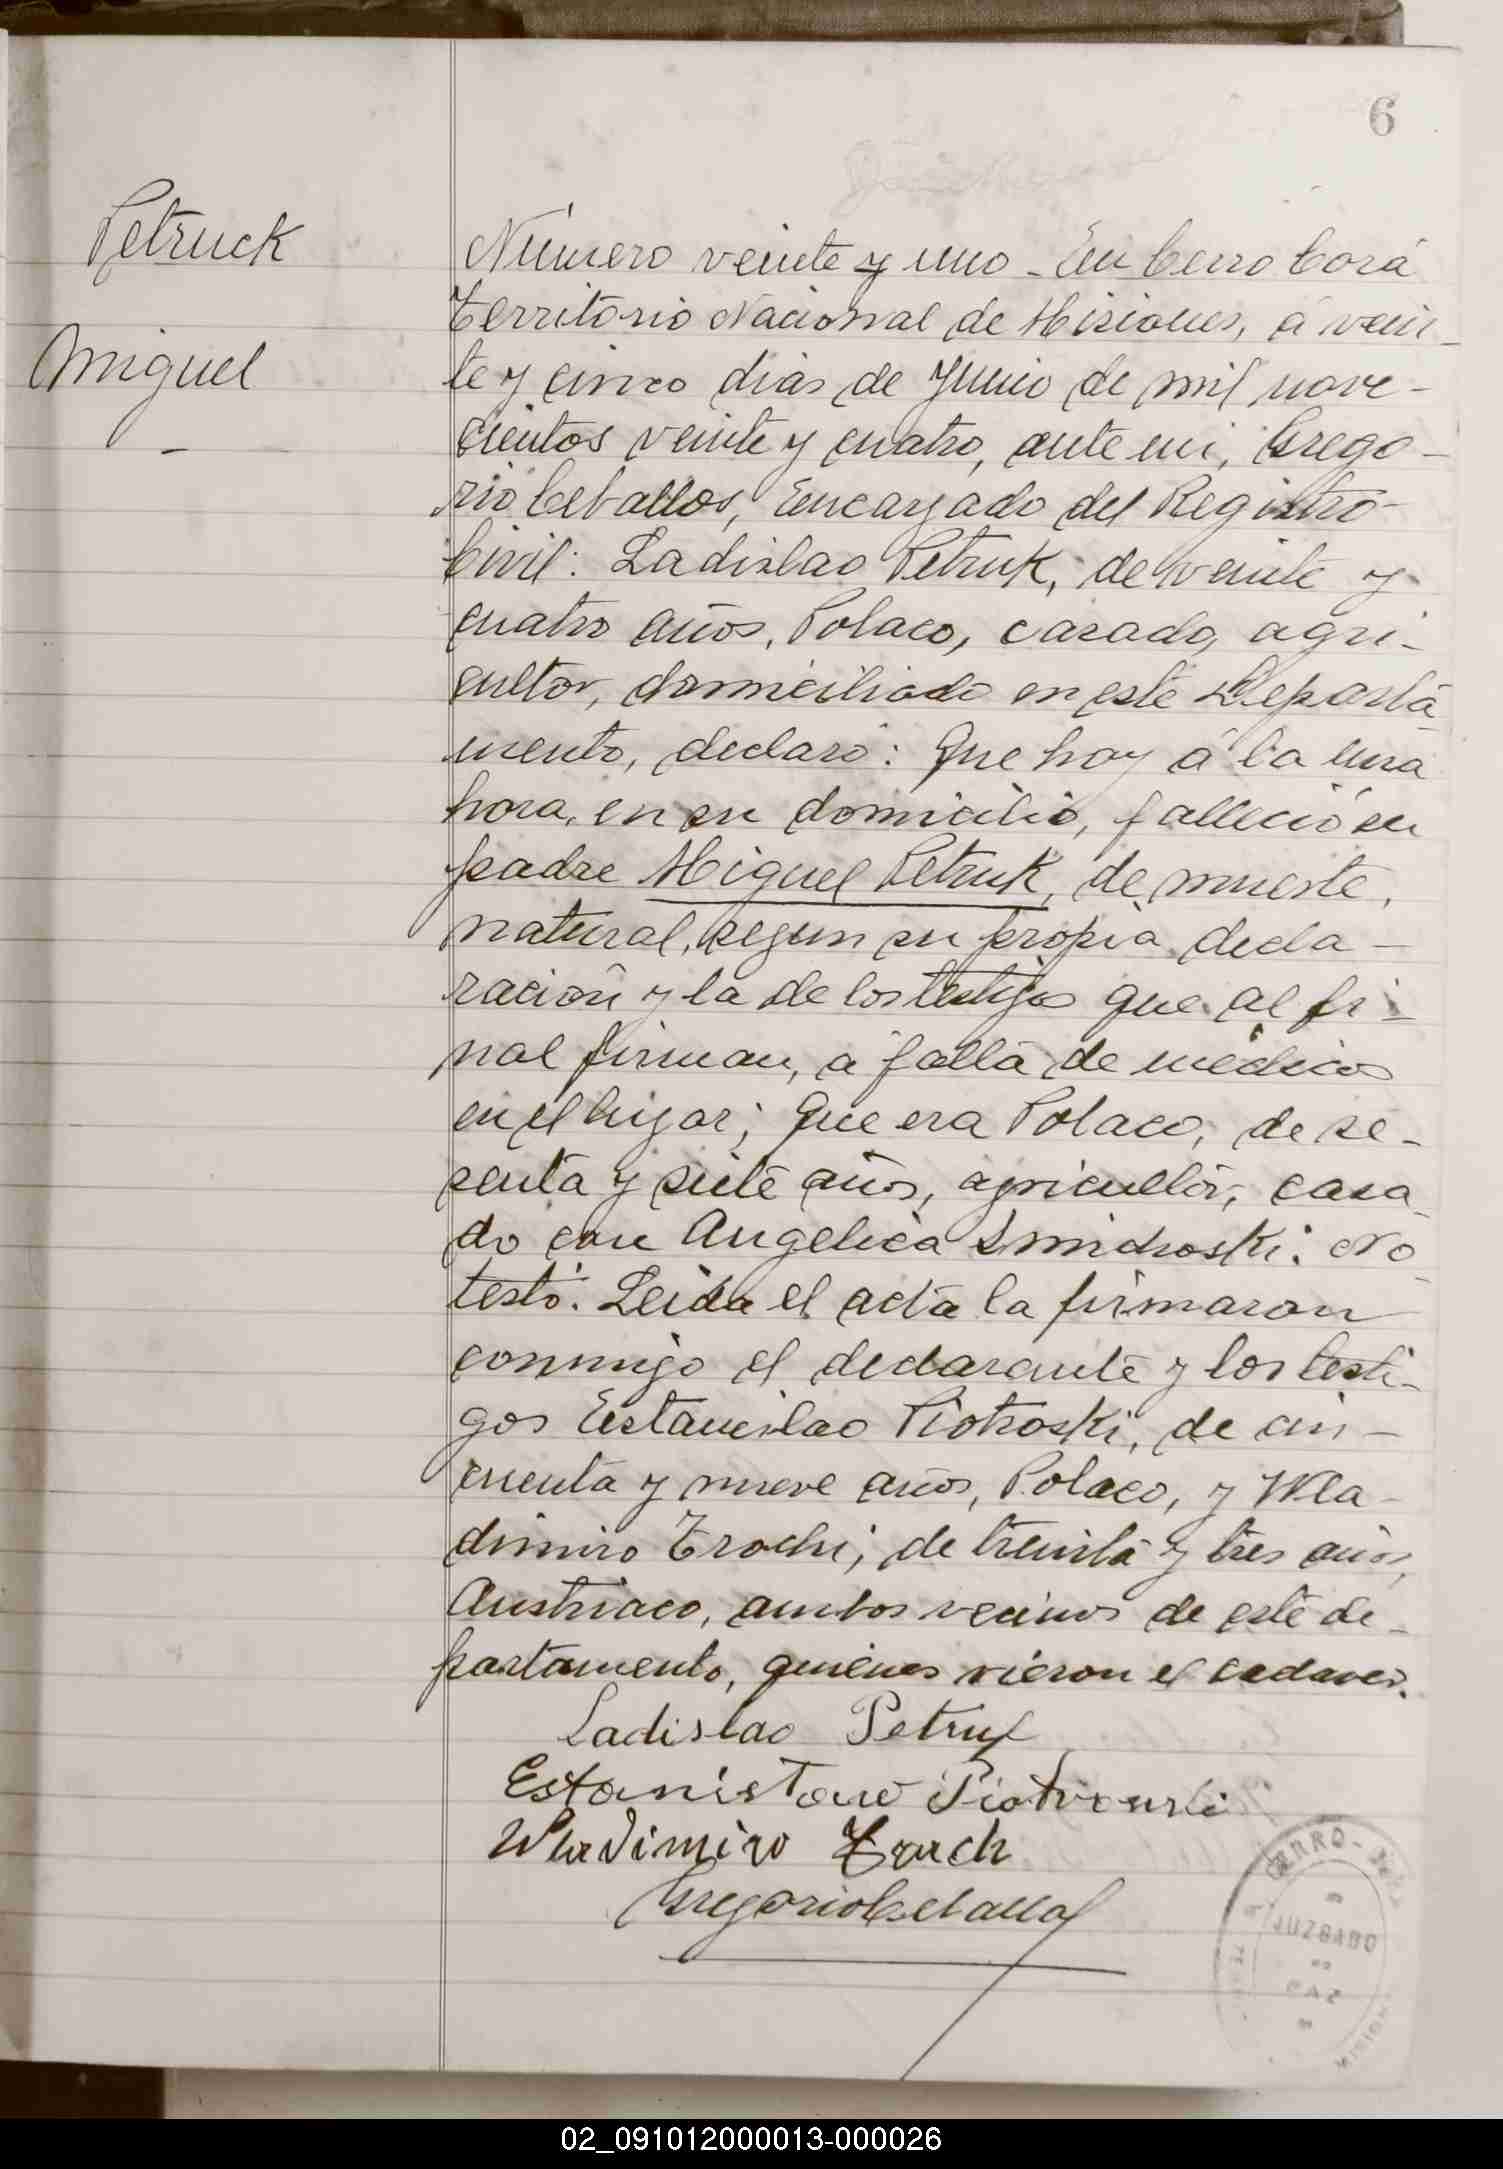 6
Petruck
Miguel
Número veinte y uno - En Cerro Corá
Territorio Nacional de Misiones, á vein-
te y cinco dias de Junio de mil nove-
cientos veinte y cuatro, ante mi, Grego-
rio Ceballos, Encargado del Registro
Civil: Ladislao Petruk, de veinte y
cuatro años, Polaco, casado, agri-
cultor, domiciliado en este Departa
mento, declaró: Que hoy á la una
hora, en su domicilio, falleció su
padre Miguel Petruk, de muerte
natural, segun su propia decla-
ración y la de los testigos que al fi-
nal firman, a falta de medicos
en el lugar; Que era Polaco, de se-
senta y siete años, agricultor, casa
do con Angelica Smidroski. No
testó. Leida el acta la firmaron
conmigo el declarante y los testi-
gos Estanislao Piotroski, de cin-
cuenta y nueve años, Polaco, y Wla-
dimiro Trochi, de treinta y tres años,
Austriaco, ambos vecinos de este de-
partamento, quienes vieron el cadaver.
Ladislao Petruk
Estanistawo Piotrowski
Wladimiro
Gregorio Ceballos
CERRO-
JUZGADO
DE
PAZ
02_091012000013-000026